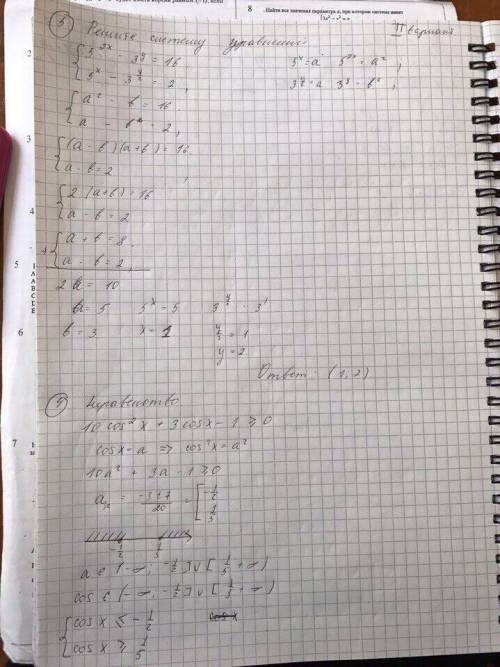 8 Найти все значения параметра a, при котором система имеет
③ Решите систему уравнений: II вариант
{ 5^2x - 3^y = 16 5^x = a 5^2x = a² ;
{ 5^x - 3^(y/2) = 2, 3^(y/2) = в 3^y = в² ;
{ a² - в² = 16
{ a - в = 2,
{ (a - в)(a + в) = 16
{ a - в = 2 ,
{ 2 (a + в) = 16
{ a - в = 2
+ { a + в = 8
{ a - в = 2,
2a = 10
a = 5 5^x = 5 3^(y/2) = 3^1
в = 3 x = 1 y/2 = 1
y = 2
Ответ: (1, 2)
④ Неравенство
10 cos² x + 3 cos x - 1 ≥ 0
cos x = a => cos² x = a²
10a² + 3a - 1 ≥ 0
a = (-3 ± 7)/20 = [ -1/2
1/5
-1/2 1/5
a ∈ (-∞; -1/2] ∪ [1/5 + ∞)
cos ∈ (-∞; -1/2] ∪ [1/5 + ∞)
{ cos x ≤ -1/2
{ cos x ≥ 1/5
3
4
5
6
7